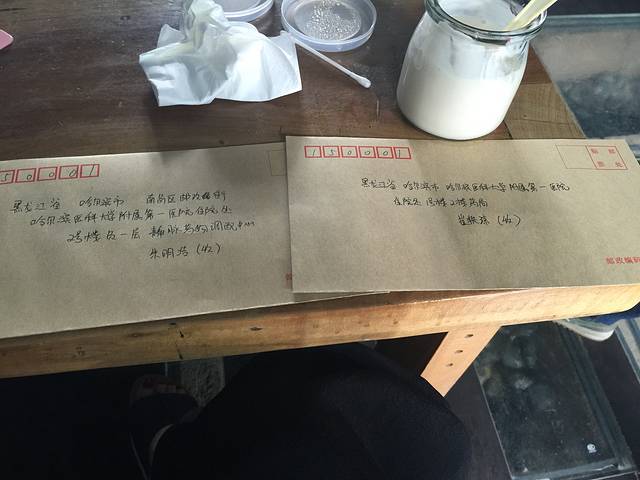 50001
黑龙江省 哈尔滨市 南岗区邮政街
哈尔滨医科大学附属第一医院住院处
2号楼负一层 静脉药物调配中心
朱明洁(收)
150001
黑龙江省 哈尔滨市 哈尔滨医科大学附属第一医院
住院处 2号楼
(收)
邮政编码